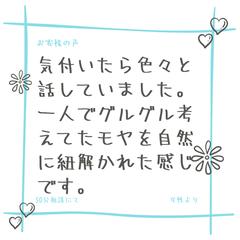 お客様の声
気付いたら色々と
話していました。
一人でグルグル考
えてたモヤを自然
に紐解かれた感じ
です。
50分相談にて
女性より